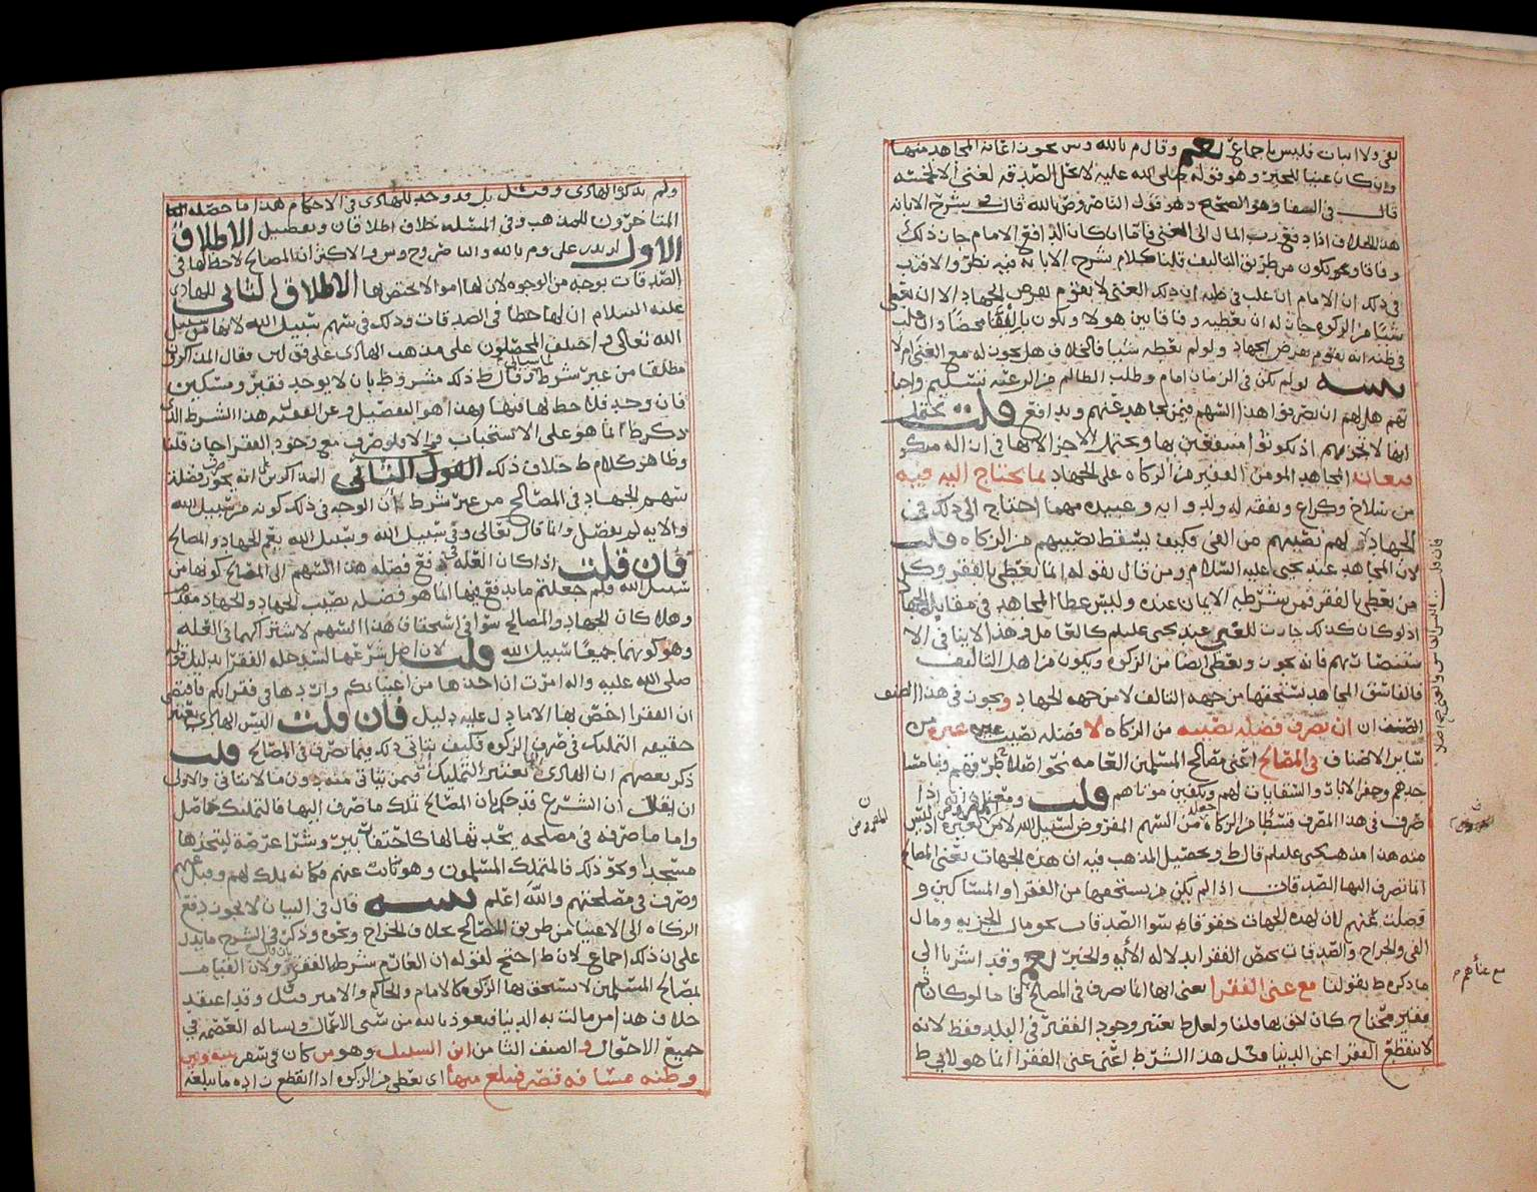 نفي ولا اثبات فليس باجماع نعم وقال م بالله وس يجوز اعانة المجاهد منها
وان كان غنيا للخبر وهو قوله صلى الله عليه لا تحل الصدقة لغني الا لخمسة
قال في الشفا وهو الصحيح وهو قول الناصر رضى الله قال في شرح الابانة
هذا الخلاف اذا دفع رب المال الى الغني فأما ان كان الدافع الامام جاز ذلك
وفاقا ويكون من طريق التاليف قلنا كلام شرح الابانة فيه نظر والاقرب
في ذلك ان الامام ان غلب في ظنه ان ذلك الغني لا يقوم بفرض الجهاد الا ان يعطى
شيئا من الزكوة جاز له ان يعطيه وفاقا بين هولا ويكون تأليفا محضا وان غلب
في ظنه انه يقوم بفرض الجهاد ولو لم يعطه شيئا فالخلاف هل يجوز له مع الغنى ام لا
لو لم يكن في الزمان امام وطلب الظالم من الرعية تسليم واجبا
تهم هل لهم ان يصرفوا هذا السهم فيمن يجاهد عنهم ويدافع قلت يحتمل
انها لا تجزيهم اذ يكونوا منتفعين بها ويحتمل الاجزا
فيعان المجاهد المومن الفقير من الزكاة على الجهاد بما يحتاج اليه فيه
من سلاح وكراع ونفقة له ولدوابه وعبيده مهما احتاج الى ذلك في
الجهاد لهم نصيبهم من الفي فكيف يسقط نصيبهم من الزكاة قلت
لان المجاهد عند يحيى عليه السلام ومن قال بقوله انما يعطى بالفقر وكل
من يعطى بالفقر فمن شرطه الايمان عنده وليس عطا المجاهد في مقابلة الجهاد
اذ لو كان كذلك جازت للغني عند يحيى عليلم كالعامل وهذا لا ينافي الا
فانه يجوز ويعطى ايضا من الزكوة ويكون من اهل التاليف
فالفاسق المجاهد يستحقها من جهة التالف لا من جهة الجهاد ويجوز في هذا الصنف
ان تصرف فضلة نصيبه من الزكاة لا فضلة نصيب غيره من
ساير الاصناف في المصالح اعني مصالح المسلمين العامة نحو اصلاح طرقهم وبنا مسا
جدهم وحفر الابار والسقايات لهم وتكفين موتاهم قلت ومعنى
صرف في هذا المصرف قسطا من الزكاة من السهم المفروض لسبيل الله لا من غيره
منه هذا مذهب يحيى عليلم قال ط وتحصيل المذهب فيه ان هذه الجهات يعني المصالح
انما تصرف اليها الصدقات اذا لم يكن من يستحقها من الفقرا والمساكين و
فضلت عنهم لان لهذه الجهات حقوقا سوا الصدقات نحو مال الجزيه ومال
الفي والخراج والصدقات تخص الفقرا بدلالة الأية والخبر نعم وقد اشرنا الى
ما ذكره ط بقولنا مع غنى الفقرا يعني انها انما تصرف في المصالح فأما لو كان ثم
فقير محتاج كان احق بها قلنا ولعل ط يعتبر وجود الفقير في البلد فقط لانه
لا ينقطع الفقرا عن الدنيا ومثل هذا الشرط اعني غنى الفقرا انما هو لابي ط
مع غناهم
المفروض
ولم يذكره الهادي وقيل بل قد وجد للهادي في الاحكام هذا ما حصله
المتاخرون للمذهب وفي المسئلة خلاف اطلاقان وتفصيل الاطلاق
الاول لزيد بن علي وم بالله والناصر وح وس والاكثر ان المصالح لا حظ لها في
الصدقات بوجه من الوجوه لان لها اموالا تختص بها الاطلاق الثاني للهادي
عليه السلام ان لها حظا في الصدقات وذلك في سهم سبيل الله لانها من سبيل
الله تعالى واختلف المحصلون على مذهب الهادي على قولين فقال المذاكرون
مطلقا من غير شرط وقال ط ذلك مشروط بان لا يوجد فقير ومسكين
فان وجد فلا حظ لها فيها وهذا هو التفصيل هذا الشرط الذي
ذكره ط انما هو على الاستحباب ولو صرف مع وجود الفقرا جاز قلنا
وظاهر كلام ط خلاف ذلك القول الثاني المذاكرين انه يجوز صرف فضلة
سهم الجهاد في المصالح من غير شرط لأن الوجه في ذلك كونه من سبيل الله
والاية لم يفصل وانما قال تعالى وفي سبيل الله وسبيل الله يعم الجهاد والمصالح
فان قلت اذا كان العلة في دفع فضلة هذا السهم الى المصالح كونها من
سبيل الله فلم جعلتم ما يدفع فيها انما هو فضلة نصيب الجهاد والجهاد مقدم
وهلا كان الجهاد والمصالح سوا في استحقاق هذا السهم لاشتراكهما في العلة
وهو كونهما جميعا سبيل الله قلت لان اصل شرعها لسد خلة الفقرا بدليل قوله
صلى الله عليه واله امرت ان اخذها من اغنيائكم واردها في فقرائكم فاقتضى
ان الفقرا اخص بها الا ما دل عليه دليل فان قلت اليس الهادي يعتبر
حقيقة التمليك في صرف الزكوة فكيف يتاتى ذلك فيما تصرف في المصالح قلت
ذكر بعضهم ان الهادي انما يعتبر التمليك فيمن يتاتى منه دون ما لا يتاتى والاولى
ان يقال ان الشرع قد حكم بان المصالح تملك ما صرف اليها فالتمليك حاصل
واما ما صرفه في مصلحة يحدثها لها كاحتفار بير وشرا عرصة ليتخذها
مسجدا ونحو ذلك فالمتملك المسلمون وهو نائب عنهم فكأنه ملك لهم وقبل عنهم
وصرف في مصلحتهم والله اعلم قال في البيان لا يجوز دفع
الزكاة الى الاغنيا من طريق المصالح بخلاف الخراج ونحوه وذكر في الشرح ما يدل
على ان ذلك اجماع لان ط احتج لقوله ان الغارم شرطه الفقر ولان القيام
لمصالح المسلمين لا يستحق بها الزكوة كالامام والحاكم والامير وقد اعتقد
خلاف هذا من مالت به الدنيا فنعوذ بالله من سي الاعمال ونساله العصمة في
جميع الاحوال والصنف الثامن ابن السبيل وهو من كان في سفر بينه وبين
وطنه مسافة قصر فيبلغ منها اى يعطى من الزكوة اذا انقطع زاده ما يبلغه